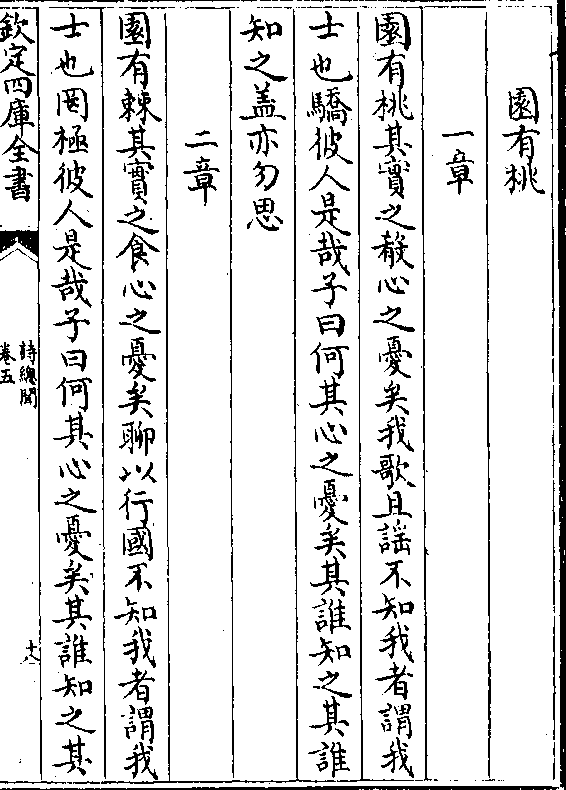 園有桃
一章
園有桃其實之殽心之憂矣我歌且謡不知我者謂我
士也驕彼人是哉子曰何其心之憂矣其誰知之其誰
知之盖亦勿思
二章
園有棘其實之食心之憂矣聊以行國不知我者謂我
士也罔極彼人是哉子曰何其心之憂矣其誰知之其
欽定四庫全書
詩總聞
卷五
十八